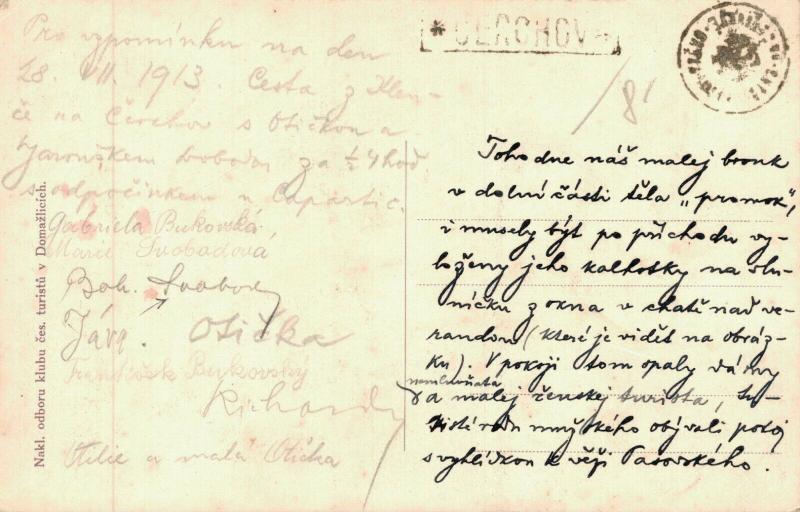 * ČERCHOV *
81
Pro vzpomínku na den
28. VII. 1913. Cesta z Klen-
če na Čerchov s Otičkou a
Jarouškem Svobodov za ½ 4 hod
s odpočinkem u Capartic.
Gabriela Bukovská,
Marie Svobodová,
Boh. Svoboda
Jára. Otička
František Bukovský
Richard
Otilie a malá Otička
Nakl. odboru klubu čes. turistů v Domažlicích.
Toho dne náš malej brouk
v dolní části těla „promok",
i musely být po příchodu vy-
loženy jeho kalhotky na slu-
níčku z okna v chatě nad ve-
randou (které je vidět na obráz-
ku). V pokoji tom spaly dámy
nemluvňata
a malej ženskej turista, tu-
risté rodu mužského obývali pokoj
s vyhlídkou k věži Pasovského.